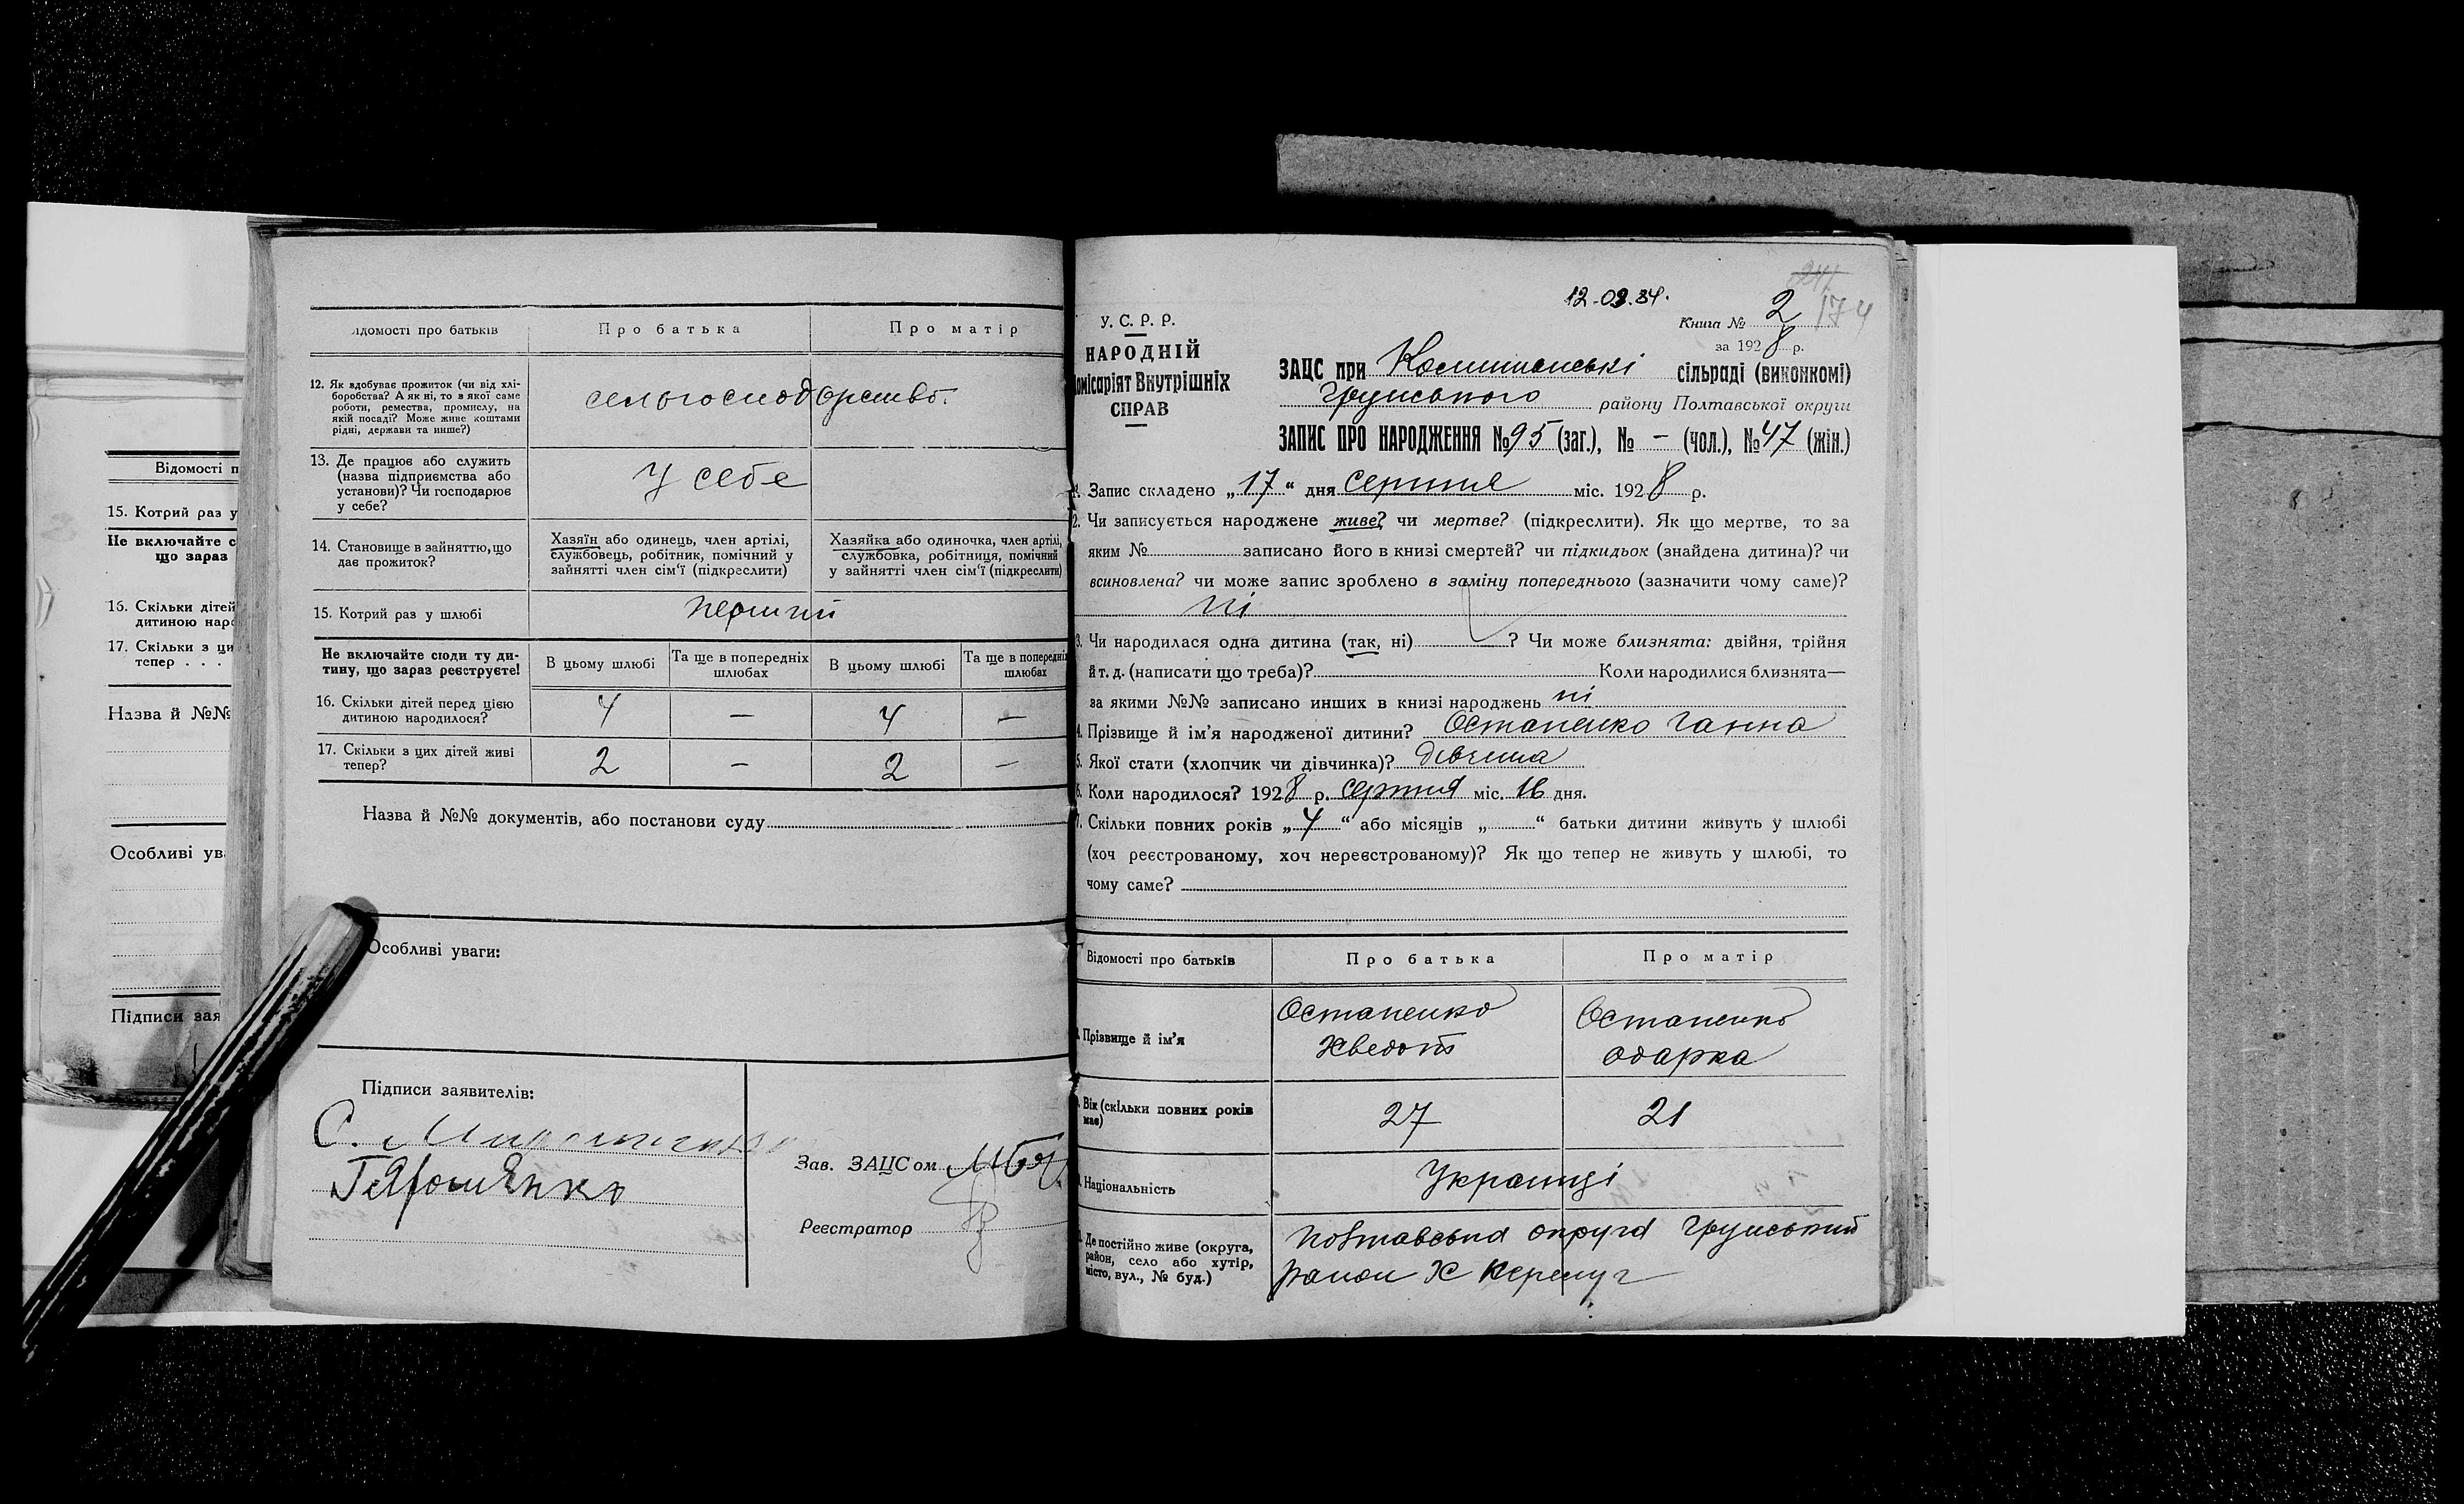 Відомості п
15. Котрий раз у
Не включайте с
що зараз
16. Скільки дітей
дитиною наро
17. Скільки з ци
тепер . . .
Назва й №№
Особливі ув
Підписи зая
ідомості про батьків
Про батька
Про матір
12. Як здобуває прожиток (чи від хлі-
боробства? А як ні, то в якої саме
роботи, ремества, промислу, на
якій посаді? Може живе коштами
рідні, держави та инше?)
сельгосподарство.
13. Де працює або служить
(назва підприємства або
установи)? Чи господарює
у себе?
У себе
14. Становище в зайняттю, що
дає прожиток?
Хазяїн або одинець, член артілі,
службовець, робітник, помічний у
зайнятті член сім'ї (підкреслити)
Хазяйка або одиночка, член артілі,
службовка, робітниця, помічний
у зайнятті член сім'ї (підкреслити)
15. Котрий раз у шлюбі
перший
Не включайте сюди ту ди-
тину, що зараз реєструєте!
В цьому шлюбі
Та ще в попередніх
шлюбах
В цьому шлюбі
Та ще в попередніх
шлюбах
16. Скільки дітей перед цією
дитиною народилося?
4 — 4 —
17. Скільки з цих дітей живі
тепер?
2 — 2 —
Назва й №№ документів, або постанови суду
Особливі уваги:
Підписи заявителів:
Зав. ЗАЦСом
Реєстратор
12-03.34.
174
У. С. Р. Р.
НАРОДНІЙ
омісаріят Внутрішніх
СПРАВ
Книга № 2
за 1928 р.
ЗАЦС при сільраді (виконкомі)
Грунського району Полтавської округи
ЗАПИС ПРО НАРОДЖЕННЯ № 95 (заг.), № — (чол.), № 47 (жін.)
1. Запис складено „17“ дня серпня міс. 1928 р.
2. Чи записується народжене живе? чи мертве? (підкреслити). Як що мертве, то за
яким № записано його в книзі смертей? чи підкидьок (знайдена дитина)? чи
всиновлена? чи може запис зроблено в заміну попереднього (зазначити чому саме)?
ні
3. Чи народилася одна дитина (так, ні) ? Чи може близнята: двійня, трійня
й т. д. (написати що треба)? Коли народилися близнята—
за якими №№ записано инших в книзі народжень ні
4. Прізвище й ім'я народженої дитини? Остапенко Ганна
5. Якої стати (хлопчик чи дівчинка)? дівчина
6. Коли народилось? 1928 р. серпня міс. 16 дня.
7. Скільки повних років „4“ або місяців „ “ батьки дитини живуть у шлюбі
(хоч реєстрованому, хоч нереєстрованому)? Як що тепер не живуть у шлюбі, то
чому саме?
Відомості про батьків
Про батька
Про матір
Прізвище й ім'я
Остапенко
Хведот
Остапенко
Одарка
Вік (скільки повних років
має)
27
21
Національність
Українці
Де постійно живе (округа,
район, село або хутір,
місто, вул., № буд.)
Полтавська округа Грунський
район Х